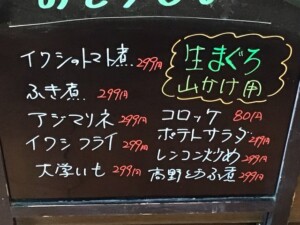 イワシのトマト煮 299円
ふき煮 299円
アジマリネ 299円
イワシフライ 299円
大学いも 299円
生まぐろ
山かけ用
コロッケ 80円
ポテトサラダ 299円
レンコン炒め 299円
高野とうふ煮 299円